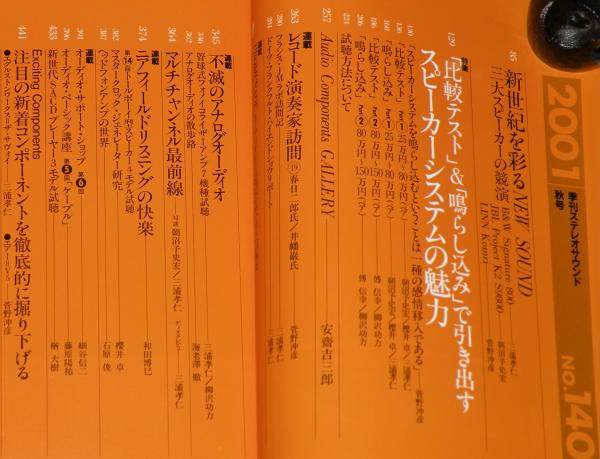 2001
季刊ステレオサウンド
秋号
No.140
85 新世紀を彩るNEW SOUND
三大スピーカーの競演
B&W Signature 800
JBL Project K2 S9800
LINN Komri
三浦孝仁
朝沼予史宏
菅野沖彦
129 特集
「比較テスト」&「鳴らし込み」で引き出す
スピーカーシステムの魅力
130 「スピーカーシステムを鳴らし込むということは一種の感情移入である」 菅野沖彦
136 「比較テスト」 Part 1 25万円〜80万円(ペア) 朝沼予史宏/櫻井 卓/三浦孝仁
「鳴らし込み」 Part 1 25万円〜80万円(ペア) 朝沼予史宏/櫻井 卓/三浦孝仁
「比較テスト」 Part 2 80万円〜150万円(ペア) 傅 信幸/柳沢功力
「鳴らし込み」 Part 2 80万円〜150万円(ペア) 傅 信幸/柳沢功力
試聴方法について
257 Audio Components GALLERY 安齋吉三郎
263 連載
レコード演奏家訪問 ⑲ 春日二郎氏/井幡巌氏 菅野沖彦
三浦孝仁
三浦孝仁
345 連載
不滅のアナログオーディオ
346 管球式フォノイコライザーアンプ7機種試聴 三浦孝仁/柳沢功力
アナログオーディオの散歩路 海老澤 徹
364 マルチチャンネル最前線 対談 朝沼予史宏/三浦孝仁 ディスクレビュー 三浦孝仁
374 連載
ニアフィールドリスニングの快楽 和田博巳
第14回 トールボーイ型スピーカー4モデル試聴
382 マスタークロック・ジェネレーター研究 櫻井 卓
387 ヘッドフォンアンプの世界 石原 俊
連載
391 オーディオ・サポート・ショップ 第6回 細谷信二
396 オーディオ・ベーシック講座 第5回「ケーブル」 藤原陽祐
433 新世代SACDプレーヤー3モデル試聴 楢 大樹
441 Exciting Components
注目の新着コンポーネントを徹底的に掘り下げる
三浦孝仁
菅野沖彦